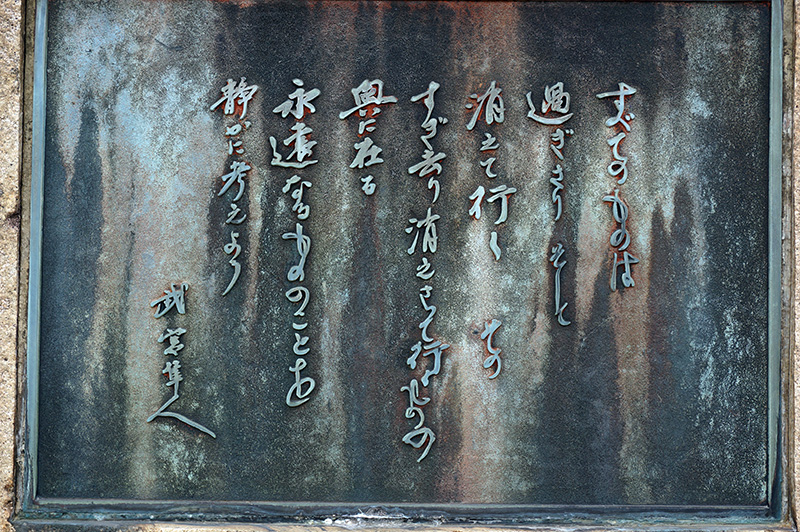 すべてのものは
過ぎさり そして
消えて行く その
すぎ去り 消えさって行くものの
奥に在る
永遠なるもののことを
静かに考えよう
武宮隼人